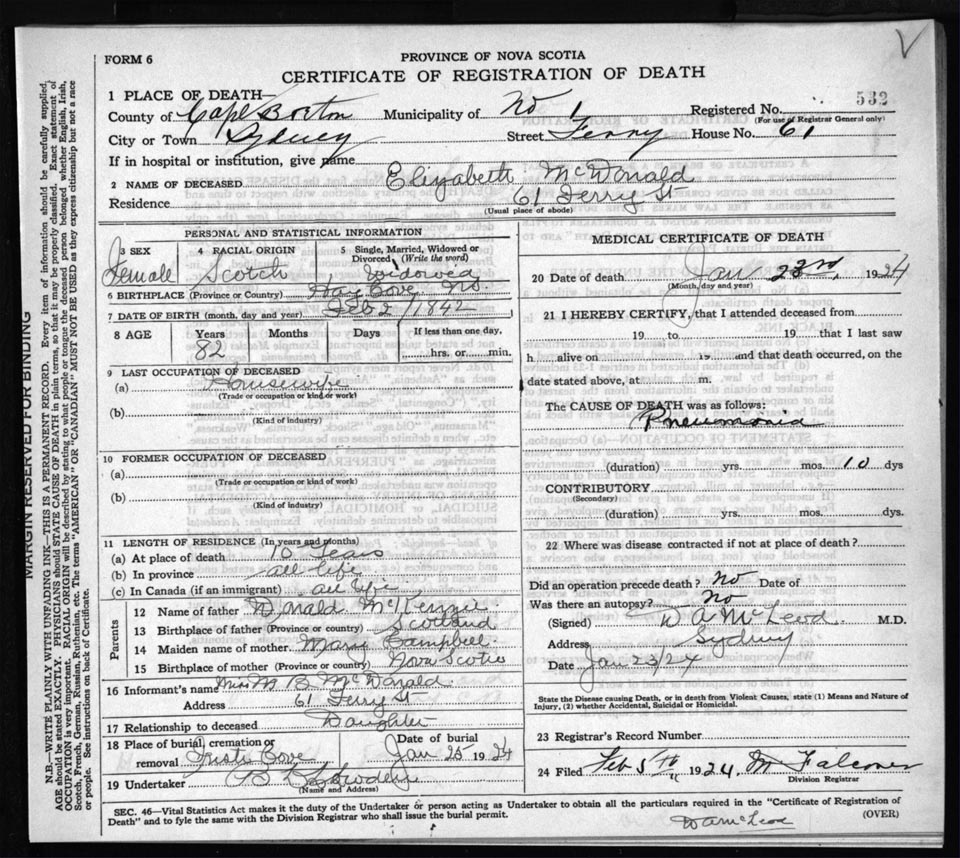 FORM 6
PROVINCE OF NOVA SCOTIA
CERTIFICATE OF REGISTRATION OF DEATH
1 PLACE OF DEATH—
County of Cape Breton Municipality of No 1 Registered No. 532
(For use of Registrar General only)
City or Town Sydney Street Ferry House No. 61
If in hospital or institution, give name
2 NAME OF DECEASED Elizabeth McDonald
Residence 61 Ferry St
(Usual place of abode)
PERSONAL AND STATISTICAL INFORMATION
3 SEX Female
4 RACIAL ORIGIN Scotch
5 Single, Married, Widowed or Divorced (Write the word) Widowed
6 BIRTHPLACE (Province or Country) Hay Cove NS.
7 DATE OF BIRTH (month, day and year) Feb 2 / 1842
8 AGE Years 82 Months Days If less than one day, hrs. or min.
9 LAST OCCUPATION OF DECEASED
(a) Housewife
(Trade or occupation or kind of work)
(b)
(Kind of industry)
10 FORMER OCCUPATION OF DECEASED
(a)
(Trade or occupation or kind of work)
(b)
(Kind of industry)
11 LENGTH OF RESIDENCE (In years and months)
(a) At place of death 10 Years
(b) In province all life
(c) In Canada (if an immigrant) all life
Parents
12 Name of father Donald McKenzie
13 Birthplace of father (Province or country) Scotland
14 Maiden name of mother Mary Campbell
15 Birthplace of mother (Province or country) Nova Scotia
16 Informant's name Miss M B McDonald
Address 61 Ferry St
17 Relationship to deceased Daughter
18 Place of burial, cremation or removal Irish Cove Date of burial Jan 25 1924
19 Undertaker
(Name and Address)
MEDICAL CERTIFICATE OF DEATH
20 Date of death Jan 23rd, 1924
(Month, day and year)
21 I HEREBY CERTIFY, that I attended deceased from
19 to 19 that I last saw
h alive on 19 and that death occurred, on the
date stated above, at m.
The CAUSE OF DEATH was as follows:
Pneumonia
(duration) yrs. mos. 10 dys
CONTRIBUTORY
(Secondary)
(duration) yrs. mos. dys.
22 Where was disease contracted if not at place of death?
Did an operation precede death? No Date of
Was there an autopsy? No
(Signed) D A McLeod M.D.
Address Sydney
Date Jan 23/24
State the Disease causing Death, or in death from Violent Causes, state (1) Means and Nature of
Injury, (2) whether Accidental, Suicidal or Homicidal.
23 Registrar's Record Number
24 Filed Feb 5th 1924. M Falconer
Division Registrar
SEC. 46—Vital Statistics Act makes it the duty of the Undertaker or person acting as Undertaker to obtain all the particulars required in the "Certificate of Registration of
Death" and to fyle the same with the Division Registrar who shall issue the burial permit.
(OVER)
D A McLeod
MARGIN RESERVED FOR BINDING
N.B.—WRITE PLAINLY WITH UNFADING INK—THIS IS A PERMANENT RECORD. Every item of information should be carefully supplied.
AGE should be stated EXACTLY. PHYSICIANS should STATE CAUSE OF DEATH in plain terms, so that it may be properly classified. Exact statement of
OCCUPATION is very important. RACIAL ORIGIN will be described by stating to what people or tongue the deceased person belonged, whether English, Irish,
Scotch, French, German, Russian, Ruthenian, etc. The terms "AMERICAN" OR "CANADIAN" MUST NOT BE USED as they express citizenship but not a race
or people. See instructions on back of Certificate.